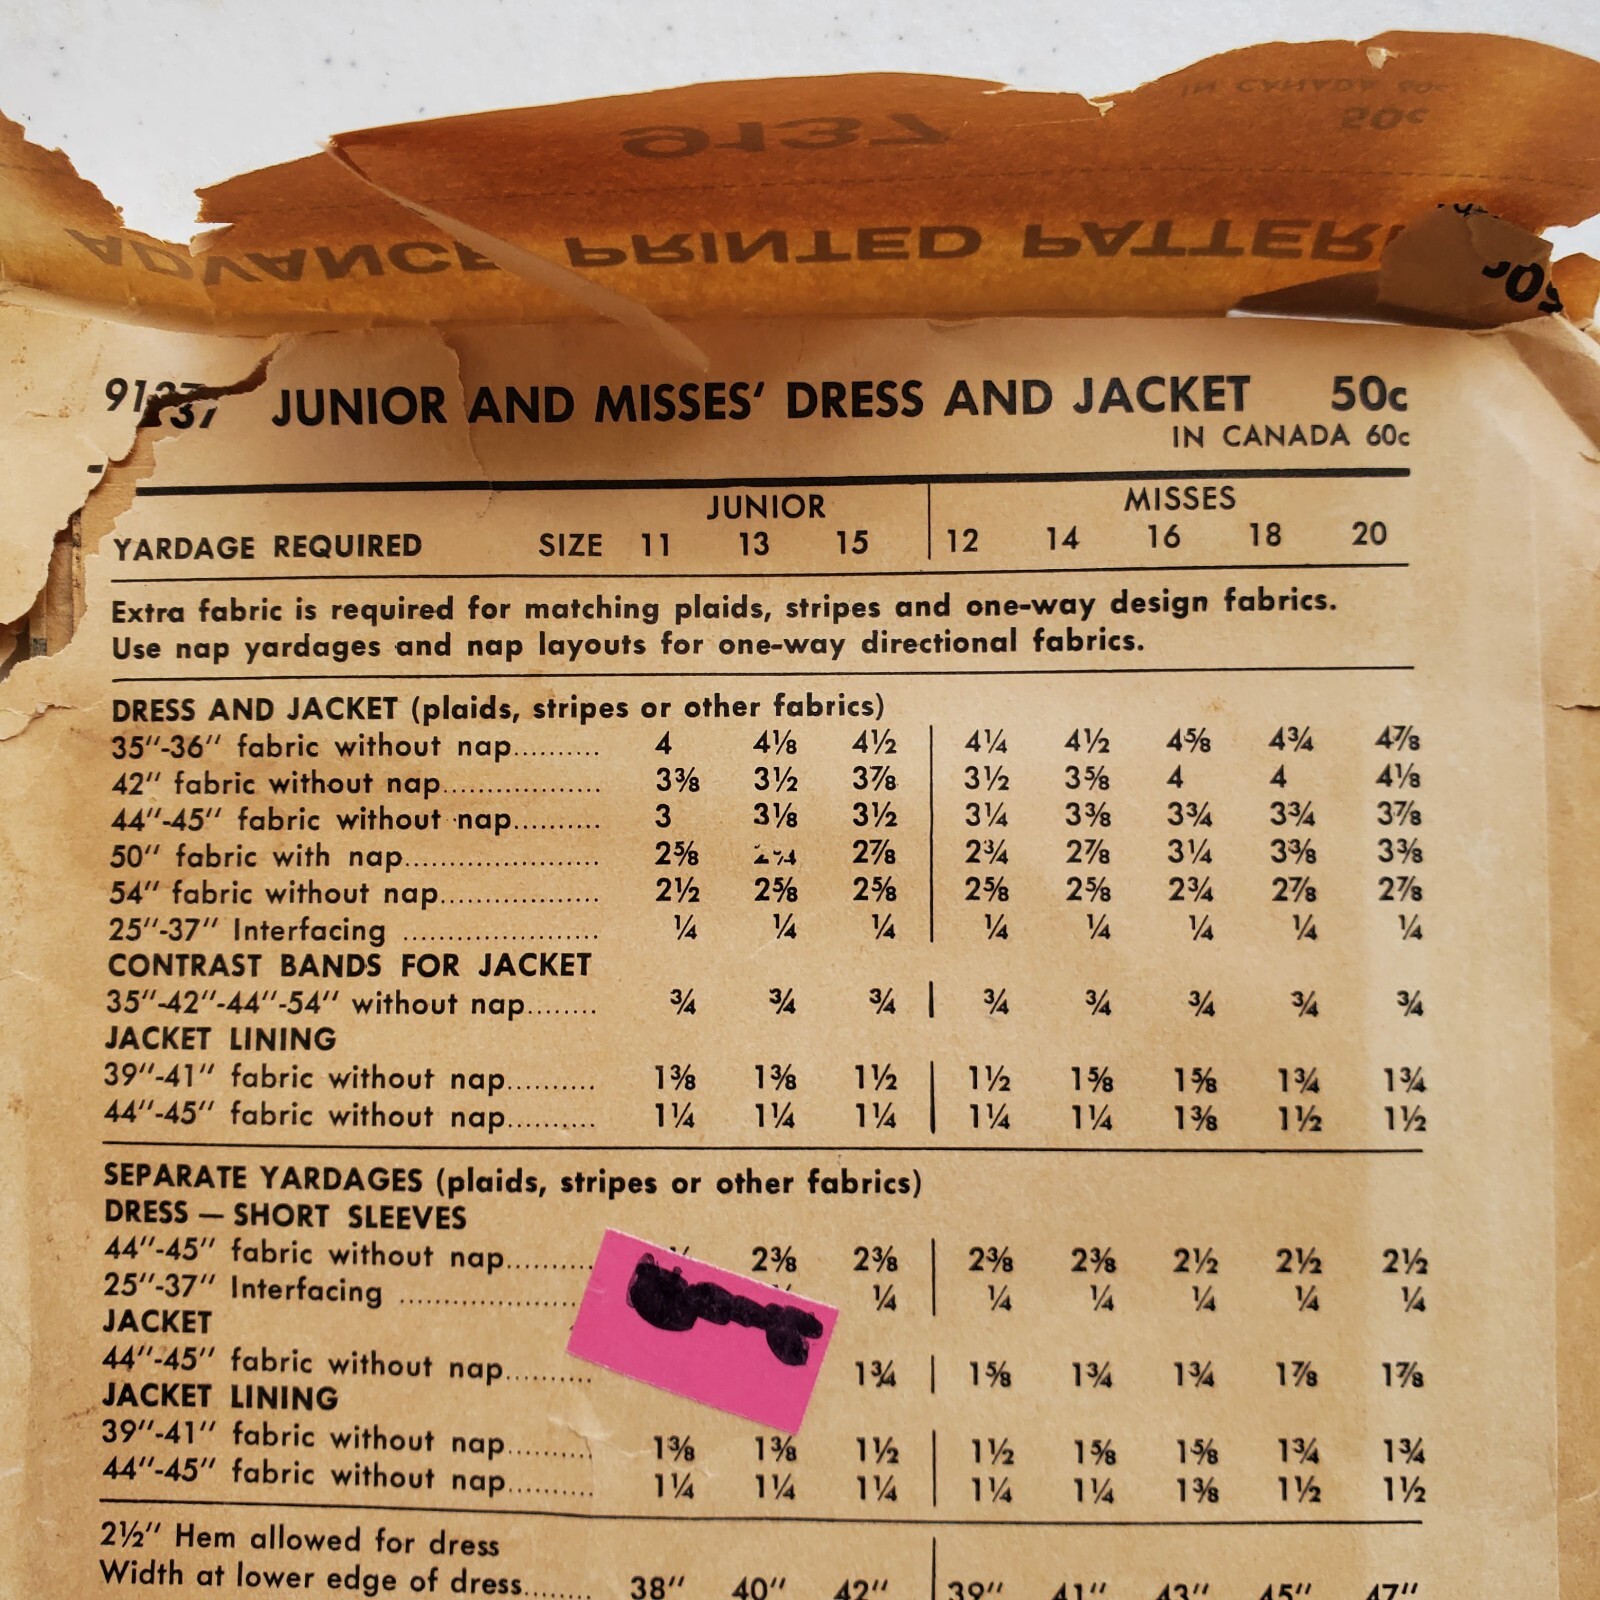 IN CANADA 60c
9137 50c
ADVANCE PRINTED PATTERN
9137 JUNIOR AND MISSES' DRESS AND JACKET 50c
IN CANADA 60c
JUNIOR MISSES
YARDAGE REQUIRED SIZE 11 13 15 12 14 16 18 20
Extra fabric is required for matching plaids, stripes and one-way design fabrics.
Use nap yardages and nap layouts for one-way directional fabrics.
DRESS AND JACKET (plaids, stripes or other fabrics)
35"-36" fabric without nap.......... 4 4⅛ 4½ 4¼ 4½ 4⅝ 4¾ 4⅞
42" fabric without nap.................. 3⅜ 3½ 3⅞ 3½ 3⅝ 4 4 4⅛
44"-45" fabric without nap.......... 3 3⅛ 3½ 3¼ 3⅜ 3¾ 3¾ 3⅞
50" fabric with nap...................... 2⅝ 2⅞ 2¾ 2⅞ 3¼ 3⅜ 3⅜
54" fabric without nap.................. 2½ 2⅝ 2⅝ 2⅝ 2⅝ 2¾ 2⅞ 2⅞
25"-37" Interfacing ...................... ¼ ¼ ¼ ¼ ¼ ¼ ¼ ¼
CONTRAST BANDS FOR JACKET
35"-42"-44"-54" without nap........ ¾ ¾ ¾ ¾ ¾ ¾ ¾ ¾
JACKET LINING
39"-41" fabric without nap.......... 1⅜ 1⅜ 1½ 1½ 1⅝ 1⅝ 1¾ 1¾
44"-45" fabric without nap.......... 1¼ 1¼ 1¼ 1¼ 1¼ 1⅜ 1½ 1½
SEPARATE YARDAGES (plaids, stripes or other fabrics)
DRESS — SHORT SLEEVES
44"-45" fabric without nap.......... 2⅜ 2⅜ 2⅜ 2⅜ 2½ 2½ 2½
25"-37" Interfacing .................... ¼ ¼ ¼ ¼ ¼ ¼
JACKET
44"-45" fabric without nap.......... 1¾ 1⅝ 1¾ 1¾ 1⅞ 1⅞
JACKET LINING
39"-41" fabric without nap.......... 1⅜ 1⅜ 1½ 1½ 1⅝ 1⅝ 1¾ 1¾
44"-45" fabric without nap.......... 1¼ 1¼ 1¼ 1¼ 1¼ 1⅜ 1½ 1½
2½" Hem allowed for dress
Width at lower edge of dress........ 38" 40" 42" 39" 41" 43" 45" 47"